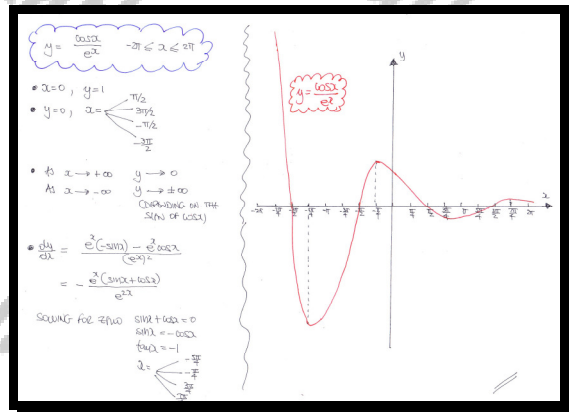 y = cosx / e^x   -2π ≤ x ≤ 2π
• x=0, y=1
• y=0, x= π/2
3π/2
-π/2
-3π/2
• As x → +∞ y → 0
As x → -∞ y → ±∞
(DEPENDING ON THE
SIGN OF COSX)
• dy/dx = e^x(-sinx) - e^x cosx / (e^x)^2
= - e^x(sinx + cosx) / e^2x
SOLVING FOR ZERO sinx + cosx = 0
sinx = -cosx
tanx = -1
x= -5π/4
-π/4
3π/4
y
y = cosx / e^x
x
-2π
2π